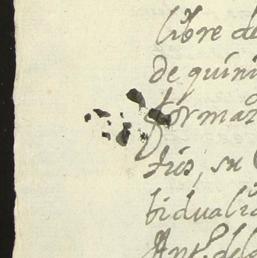 libre de
de quini
formaz
tios, su
bidualid
Ant.º dela